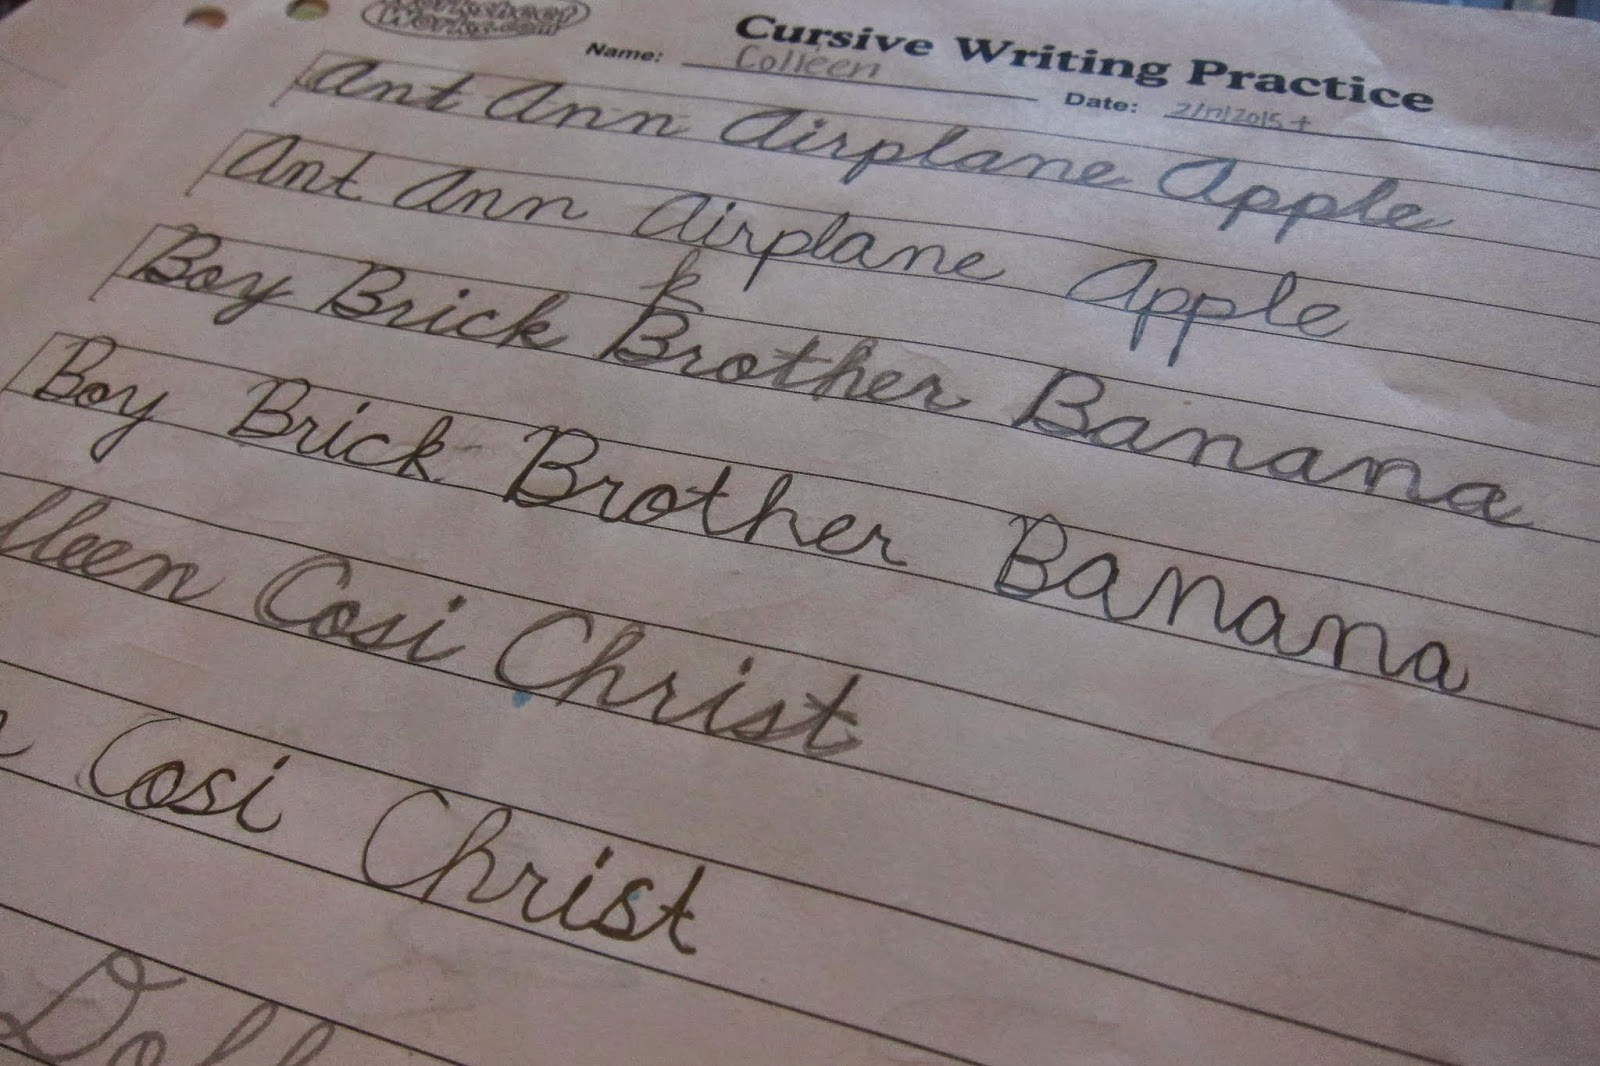 Worksheet
Works.com
Cursive Writing Practice
Name: Colleen
Date: 2/17/2015 +
Ant Ann Airplane Apple
Ant Ann Airplane Apple
k
Boy Brick Brother Banana
Boy Brick Brother Banana
lleen Cosi Christ
Cosi Christ
Doll